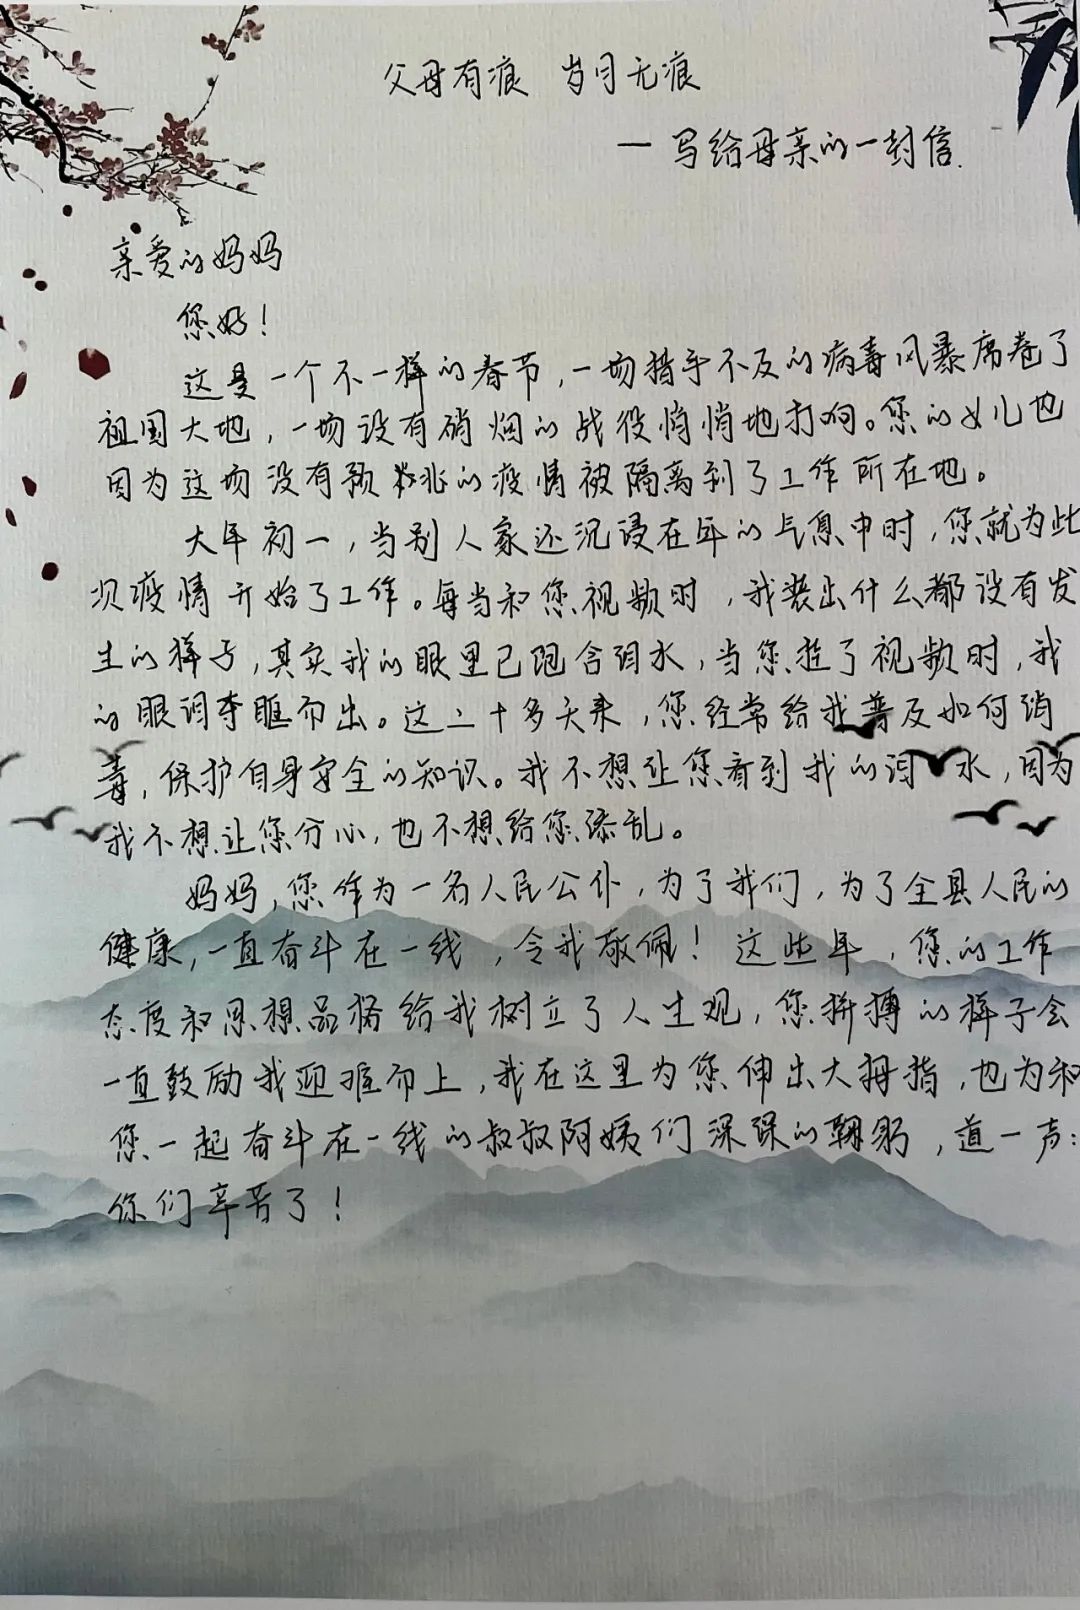 父母有痕 岁月无痕
一写给母亲的一封信.
亲爱的妈妈
您好!
这是一个不一样的春节,一场措手不及的病毒风暴席卷了
祖国大地,一场没有硝烟的战役悄悄地打响。您的女儿也
因为这场没有预兆的疫情被隔离到了工作所在地。
大年初一,当别人家还沉浸在年的气息中时,您就为此
次疫情开始了工作。每当和您视频时,我装出什么都没有发
生的样子,其实我的眼里已饱含泪水,当您挂了视频时,我
的眼泪夺眶而出。这二十多天来,您经常给我普及如何消
毒,保护自身安全的知识。我不想让您看到我的泪水,因为
我不想让您分心,也不想给您添乱。
妈妈,您作为一名人民公仆,为了我们,为了全县人民的
健康,一直奋斗在一线,令我敬佩!这些年,您的工作
态度和思想品格给我树立了人生观,您拼搏的样子会
一直鼓励我迎难而上,我在这里为您伸出大拇指,也为和
您一起奋斗在一线的叔叔阿姨们深深的鞠躬,道一声:
你们辛苦了!